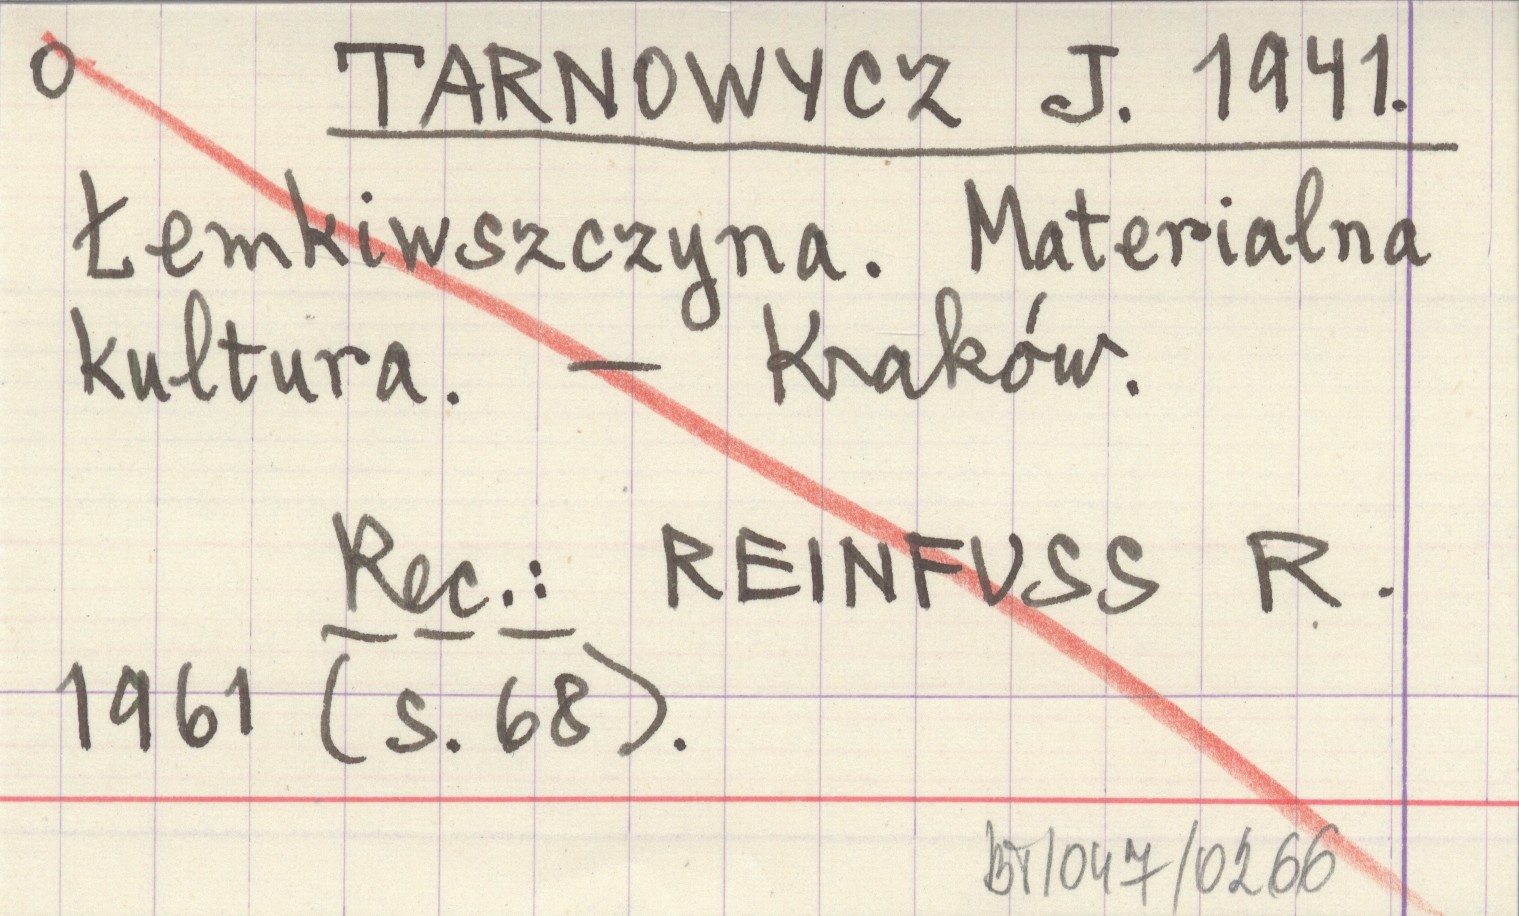 O TARNOWYCZ J. 1941.
Łemkiwszczyna. Materialna
kultura. — Kraków.
Rec.: REINFUSS R.
1961 (s. 68).
BT/047/0266